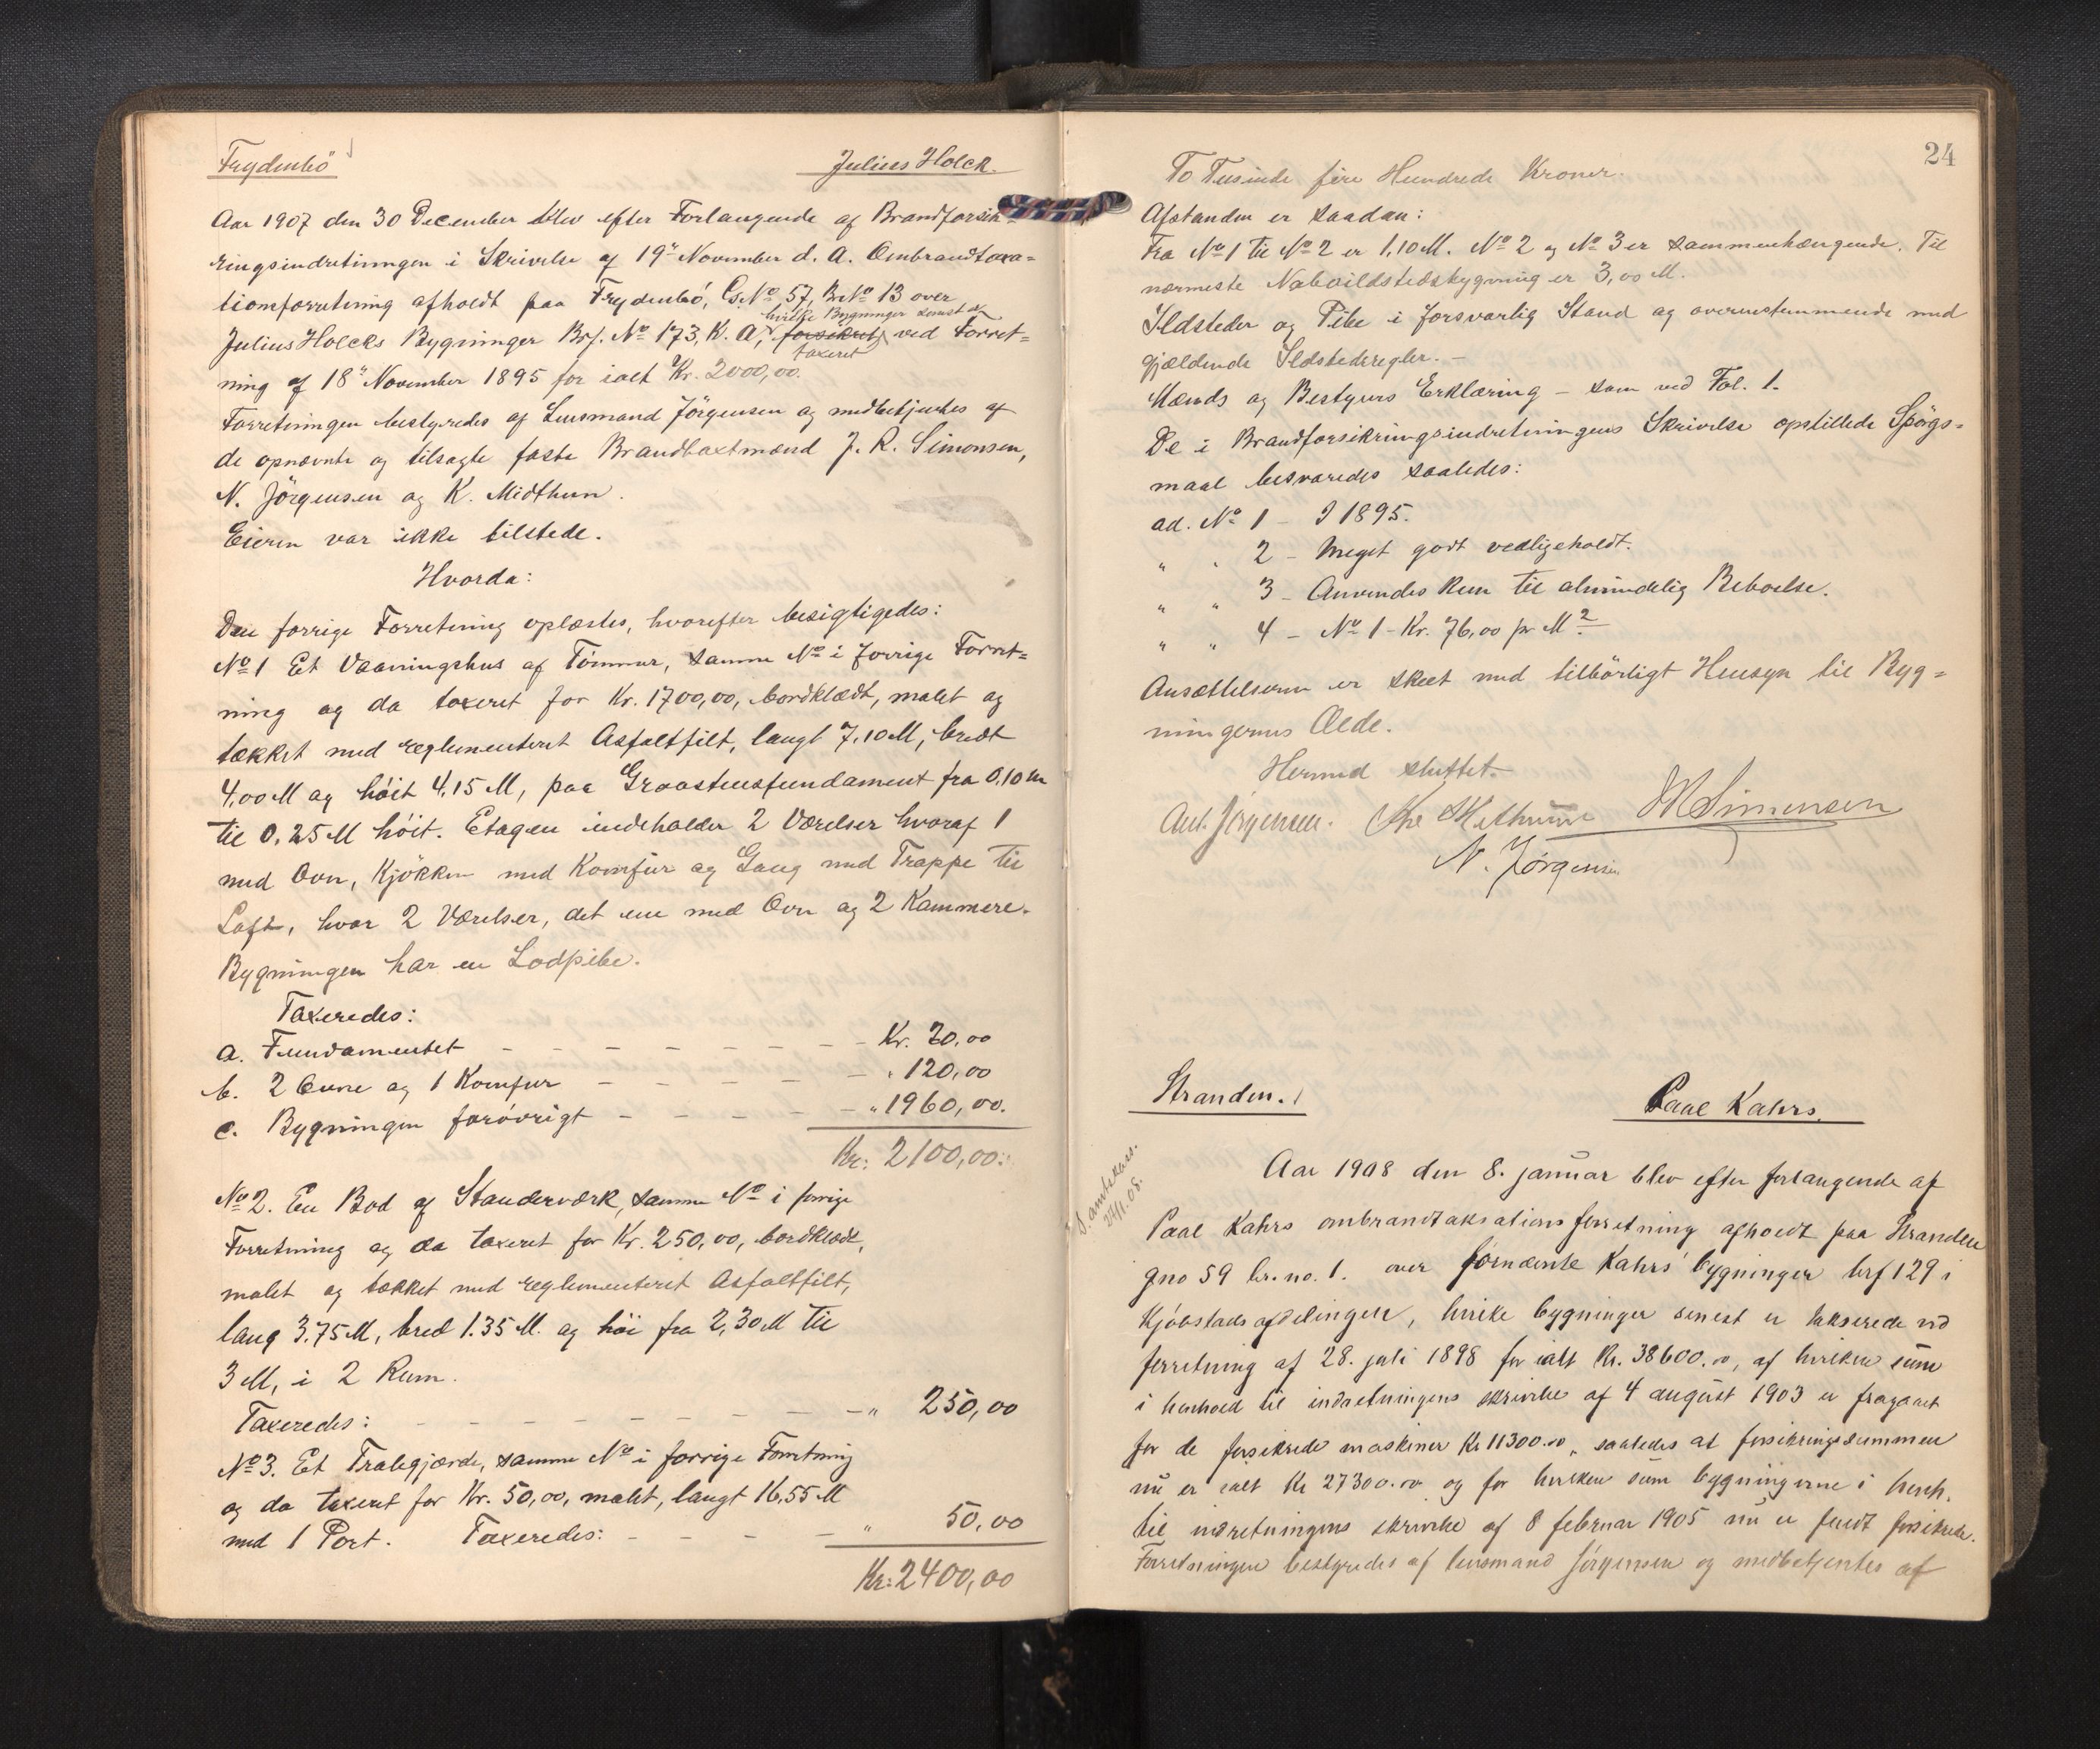 Frydenbö
Julius Holck.
Aar 1907 den 30 December blev efter Forlangende af Brandforsik-
ringsindretningen i Skrivelse af 19" November d. A. Ombrandtaxa=
tionsforretning afholdt paa Frydenbö, Gs. No 57, Br No 13 over
hvilke Bygninger senest er
Julius Holcks Bygninger Brf. No 173, K. A, forsikret ved Forret=
taxeret
ning af 18" November 1895 for ialt Kr. 2000,00.
Forretningen bestyredes af Lensmand Jörgensen og medbetjentes af
de opnævnte og tilsagte faste Brandtaxtmænd J. R. Simonsen,
N. Jörgensen og K. Midthun.
Eieren var ikke tilstede.
Hvorda:
Den forrige Forretning oplæstes, hvorefter besigtigedes:
No 1 Et Vaaningshus af Tömmer, samme No i forrige Forret=
ning og da taxeret for Kr. 1700,00, bordklædt, malet og
tækket med reglementeret Asfaltfilt, langt 7.10 M, bredt
4,00 M og höit 4,15 M, paa Graastensfundament fra 0,10 m
til 0,25 M höit. Etagen indeholder 2 Værelser hvoraf 1
med Ovn, Kjökken med Komfur og Gang med Trappe til
Loft, hvor 2 Værelser, det ene med Ovn og 2 Kammere.
Bygningen har en Lodpibe.
Taxeredes:
a. Fundamentet - - - - - - - - Kr. 20,00
b. 2 Ovne og 1 Komfur - - - - - - " 120,00
c. Bygningen forövrigt - - - - - " 1960,00.
Kr: 2100,00.
No 2. En Bod af Standerværk, samme No i forrige
Forretning og da taxeret for Kr. 250,00, bordklædt,
malet og tækket med reglementeret Asfaltfilt,
lang 3.75 M, bred 1.35 M. og höi fra 2,30 M til
3 M, i 2 Rum.
Taxeredes: - - - - - - - - - " 250,00
No 3. Et Trakgjærde, samme No i forrige Forretning
og da taxeret for Kr. 50,00, malet, langt 16,55 M
med 1 Port. Taxeredes: - - - - " 50,00
Kr: 2400,00
24
To Tusinde fire Hundrede Kroner.
Afstanden er saadan:
Fra No 1 til No 2 er 1,10 M. No 2 og No 3 er sammenhængende. Til
nærmeste Naboildstedsbygning er 3,00 M.
Ildsteder og Pibe i forsvarlig Stand og overensstemmende med
gjældende Ildstederegler. -
Mænds og Bestyrers Erklæring - som ved Fol. 1.
De i Brandforsikringsindretningens Skrivelse opstillede Spörgs=
maal besvaredes saaledes:
ad. No 1 - I 1895.
" " 2 - Meget godt vedligeholdt.
" " 3 - Anvendes kun til almindelig Beboelse.
" " 4 - No 1 - Kr. 76,00 pr M2
Ansættelserne er skeet med tilbörligt Hensyn til Byg=
ningernes Ælde.
Hermed sluttet.
Ant. Jörgensen. Simonsen
N. Jörgensen
Stranden.
Paal Kahrs.
27/1.08.
Aar 1908 den 8. januar blev efter forlangende af
Paal Kahrs ombrandtaksationsforretning afholdt paa Stranden
gno 59 br. no. 1. over Kahrs' bygninger brf 129 i
Kjöbstadsafdelingen, hvilke bygninger senest er takserede ved
forretning af 28. juli 1898 for ialt Kr. 38600.00, af hvilken sum
i henhold til indretningens skrivelse af 4 august 1903 er fragaaet
for de forsikrede maskiner Kr 11300.00, saaledes at forsikringssummen
nu er ialt Kr 27300.00 og for hvilken sum bygningerne i henh.
til indretningens skrivelse af 8 februar 1905 nu er fuldt forsikrede.
Forretningen bestyredes af lensmand Jörgensen og medbetjentes af